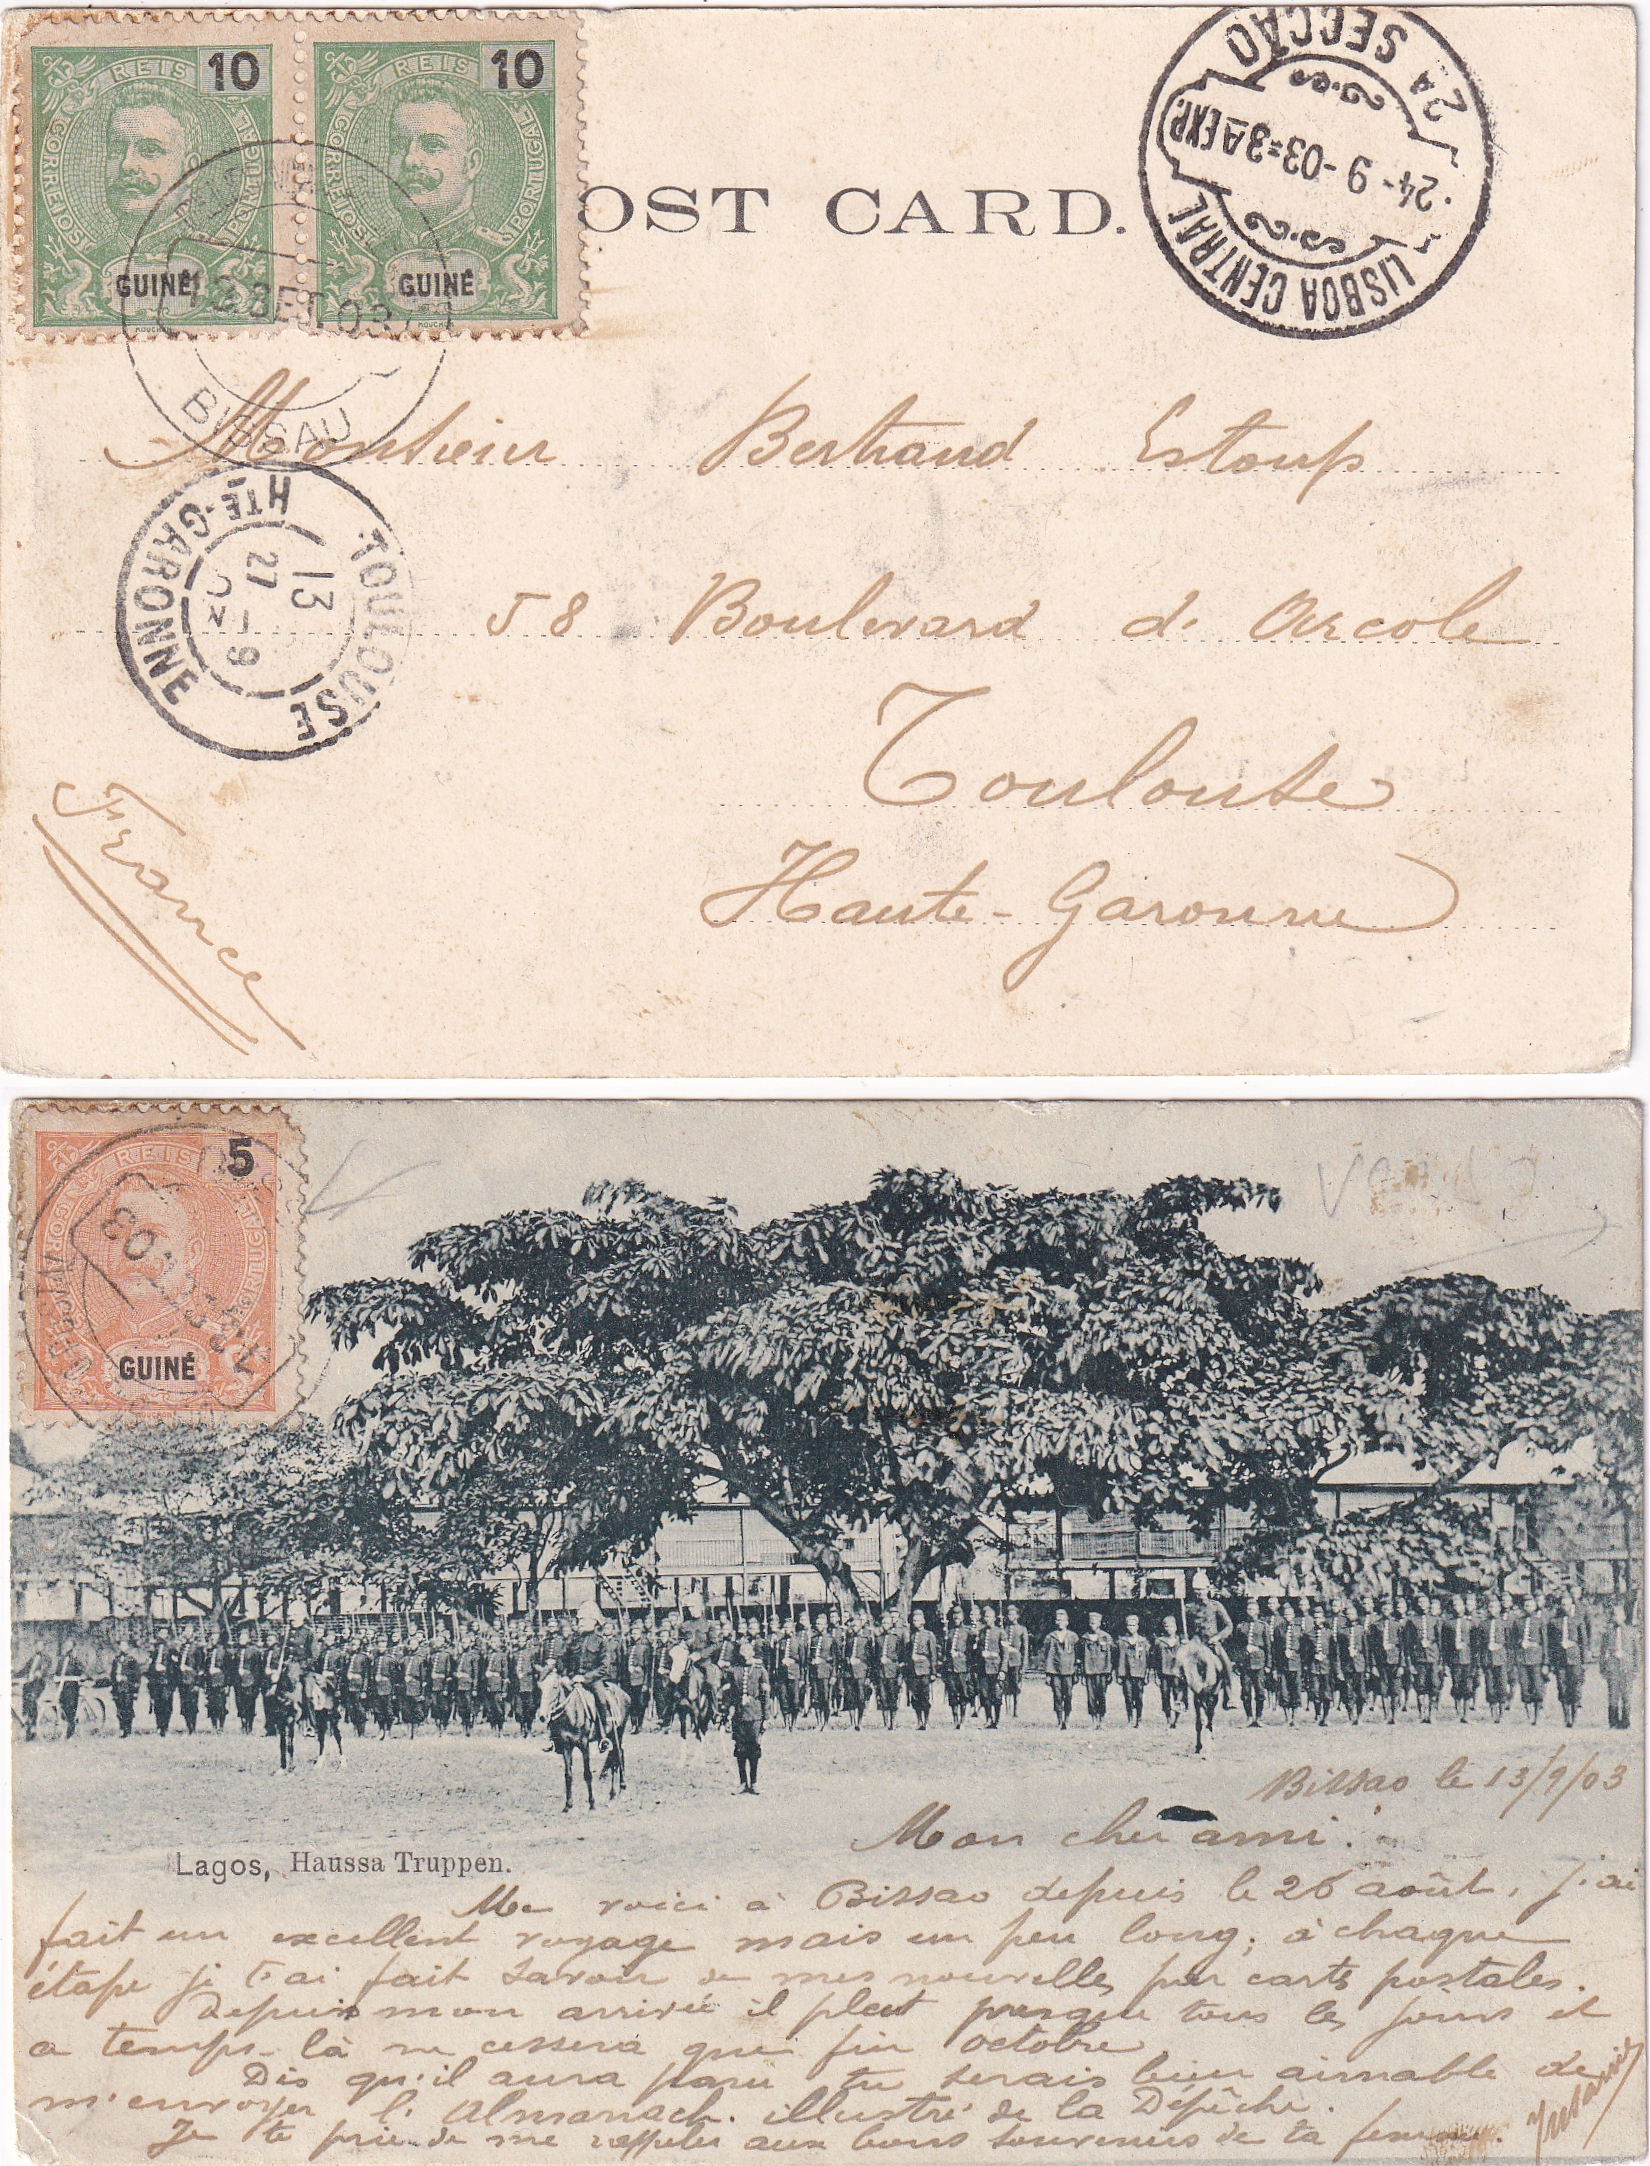 REIS 10
CORREIOS PORTUGAL
GUINÉ
MOUCHON
REIS 10
CORREIOS PORTUGAL
GUINÉ
13 SET. 03
BISSAU
POST CARD.
2ª SECÇÃO
24-9-03=3A EXP.
LISBOA CENTRAL
Monsieur Bertrand Estoup
58 Boulevard d'Arcole
Toulouse
Haute-Garonne
France
TOULOUSE
13
27
9
03
HTE-GARONNE
REIS 5
CORREIOS PORTUGAL
GUINÉ
MOUCHON
03
Bissao le 13/9/03
Mon cher ami.
Lagos, Haussa Truppen.
Me voici à Bissao depuis le 26 août, j'ai
fait un excellent voyage mais un peu long; à chaque
étape je t'ai fait savoir de mes nouvelles par cartes postales.
Depuis mon arrivée il pleut presque tous les jours et
ce temps-là ne cessera que fin octobre.
Dis qu'il aura paru tu serais bien aimable de
m'envoyer l'Almanach illustré de la Dépêche.
Je te prie de me rappeler aux bons souvenirs de ta femme.